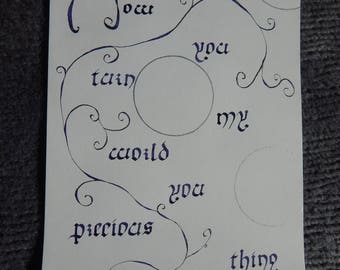 How
you
turn
my
world
you
precious
thing